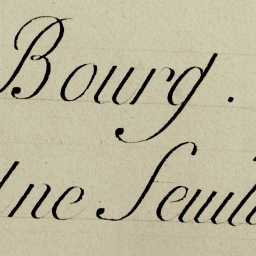 Bourg.
Une Seul